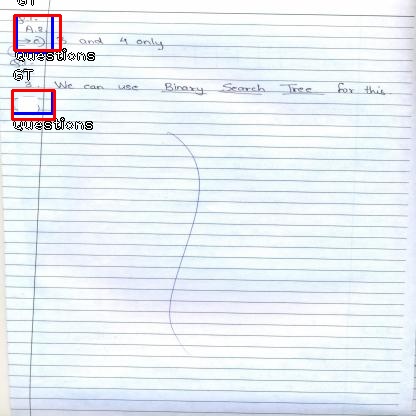 GT
A.2.
→ c) 3 and 4 only
Questions
GT
3. We can use Binary Search Tree for this
Questions